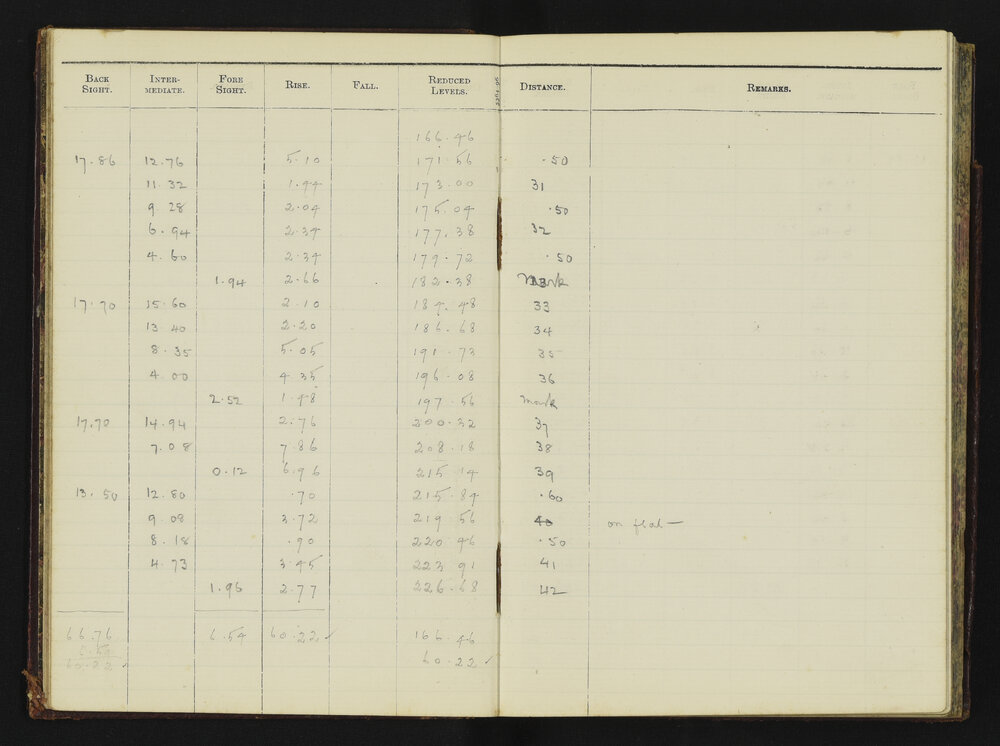 BACK SIGHT. INTER-MEDIATE. FORE SIGHT. RISE. FALL. REDUCED LEVELS. DISTANCE. REMARKS.
166.46
17.86 12.76 5.10 171.56 .50
11.32 1.44 173.00 31
9 28 2.04 175.04 .50
6.94 2.34 177.38 32
4.60 2.34 179.72 .50
1.94 2.66 182.38 Mark
17.70 15.60 2.10 184.48 33
13.40 2.20 186.68 34
8.35 5.05 191.73 35
4.00 4.35 196.08 36
2.52 1.48 197.56 mark
17.70 14.94 2.76 200.32 37
7.08 7.86 208.18 38
0.12 6.96 215.14 39
13.50 12.80 .70 215.84 .60
9.08 3.72 219.56 40 on flat—
8.18 .90 220.46 .50
4.73 3.45 223.91 41
1.96 2.77 226.68 42
66.76 6.54 60.22 ✓ 166.46
6.54 60.22 ✓
60.22 ✓